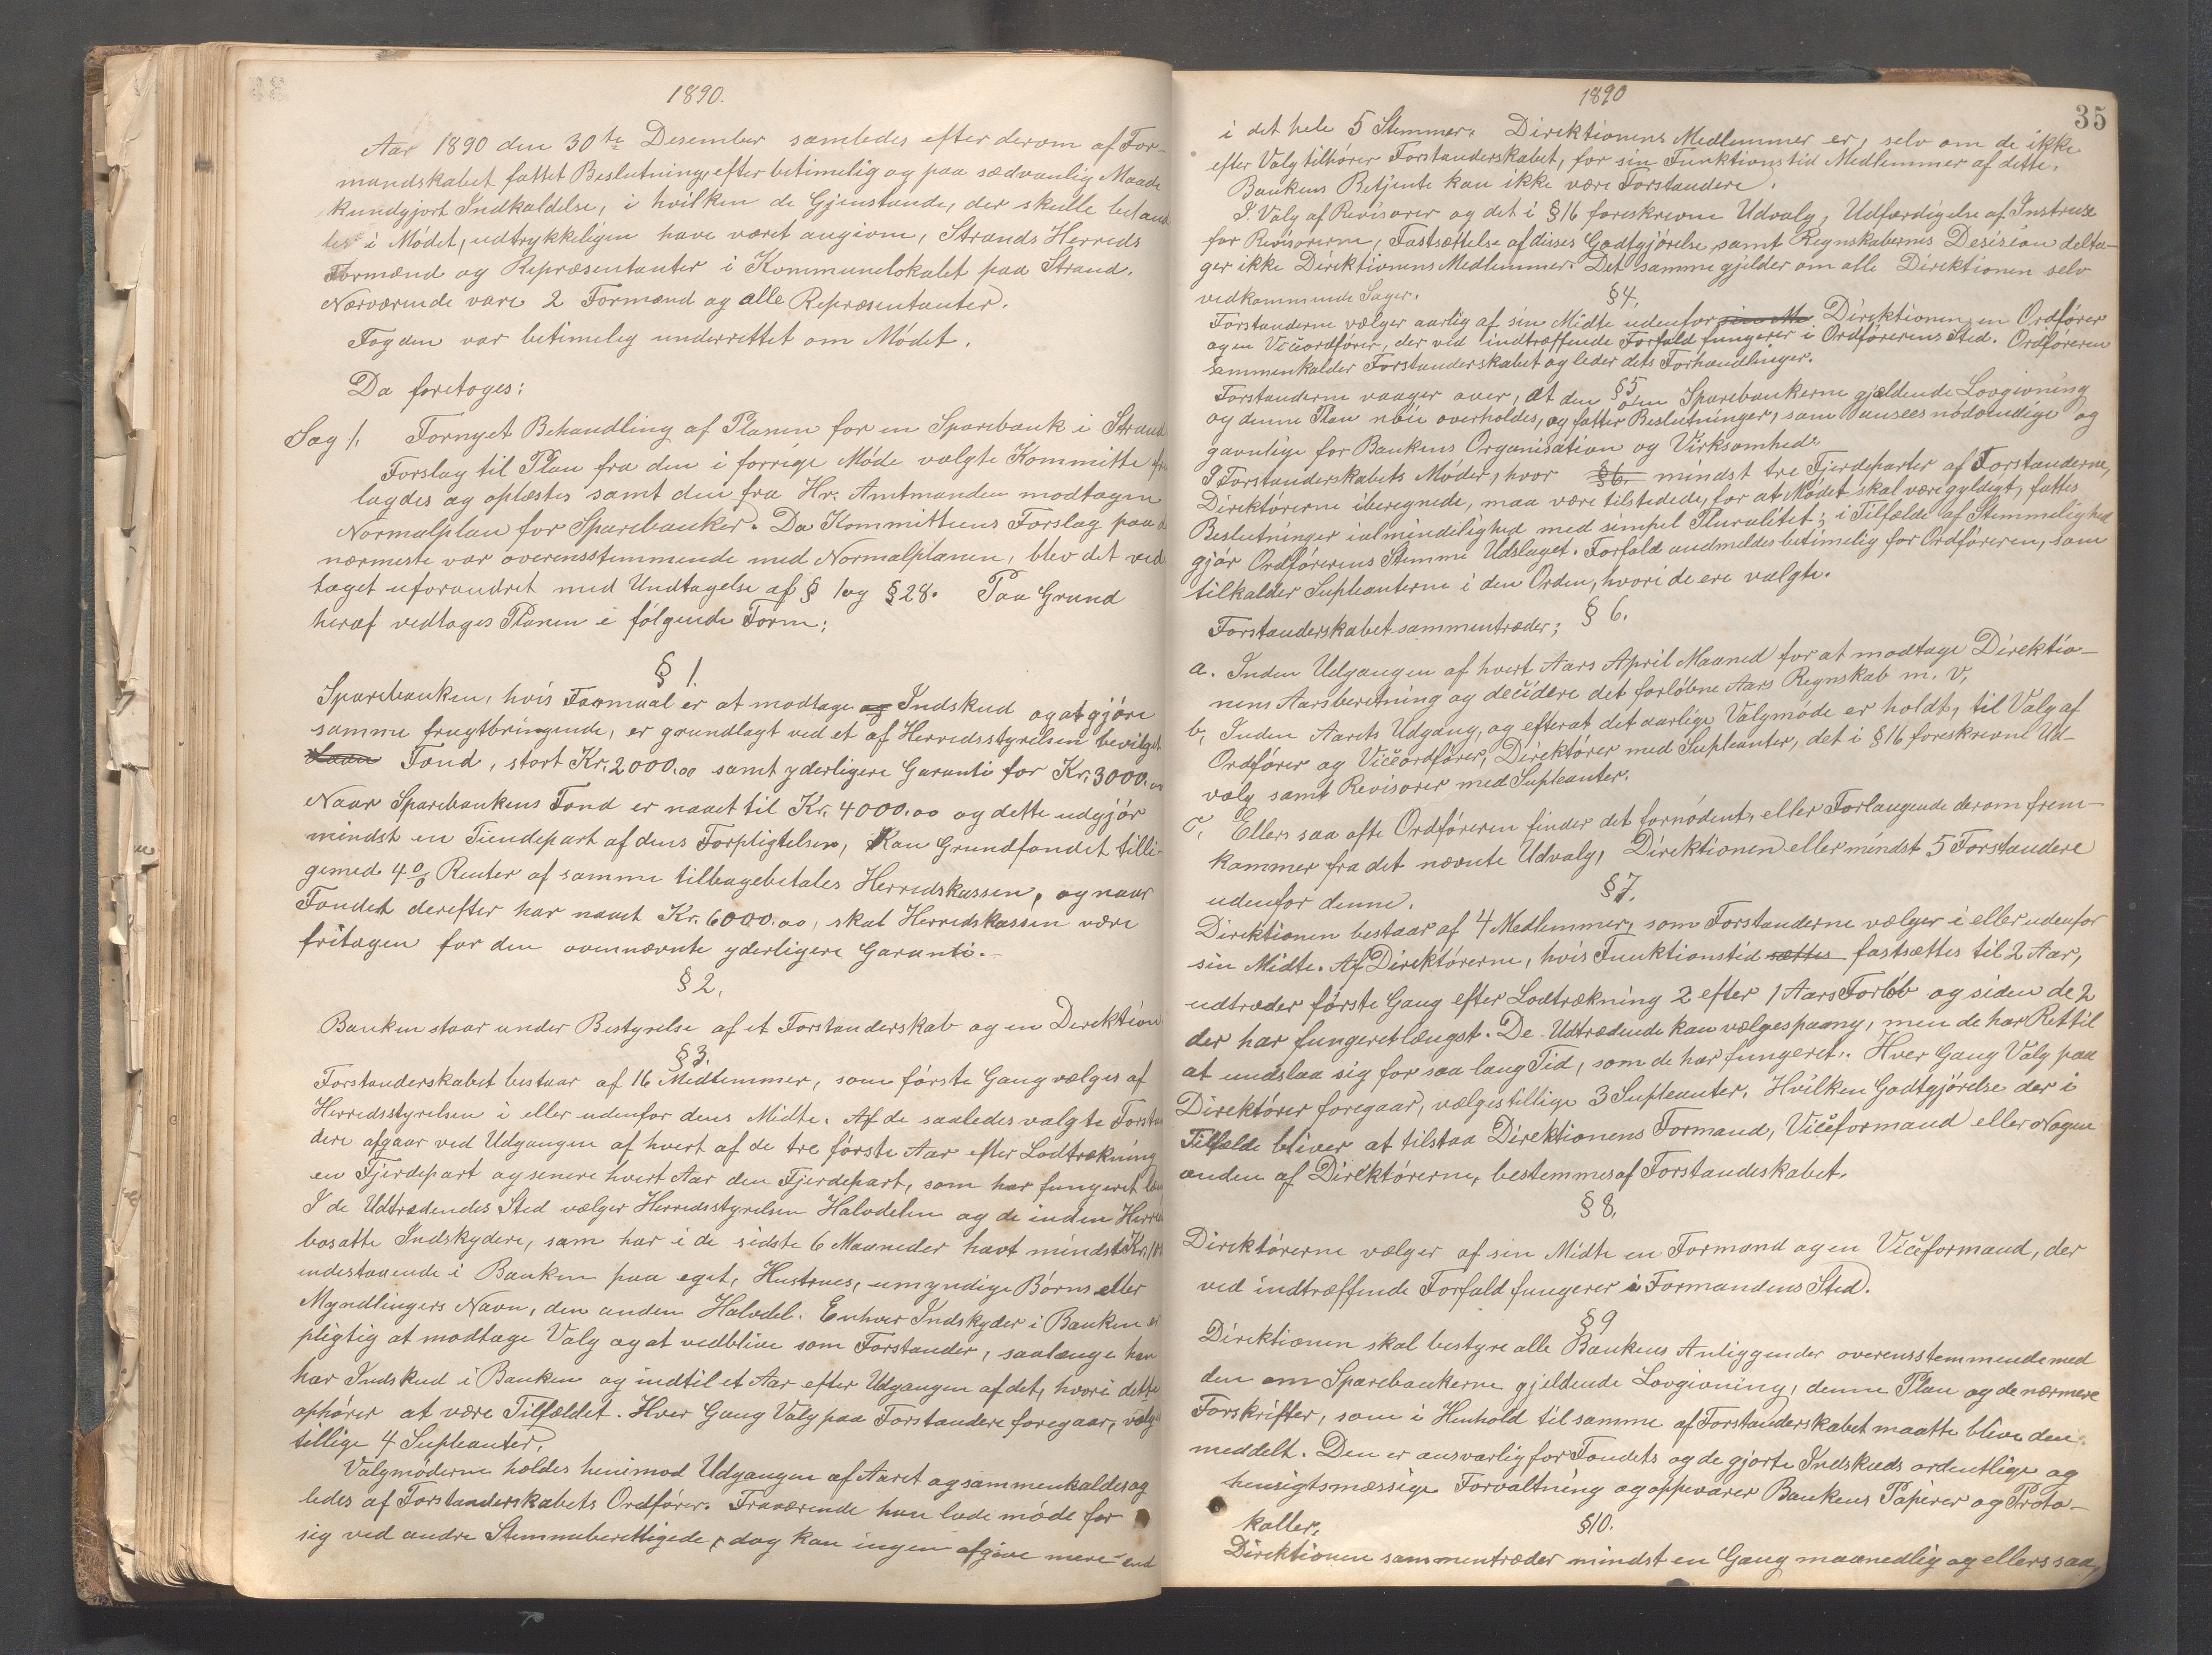 1890.
Aar 1890 den 30te Desember samledes efter derom af For-
mandskabet fattet Beslutning, efter betimelig og paa sædvanlig Maade
kundgjort Indkaldelse, i hvilken de Gjenstande, der skulle behand
les i Mødet, udtrykkeligen have været angivne, Strands Herreds
Formænd og Repræsentanter i Kommunelokalet paa Strand.
Nærværende vare 2 Formænd og alle Repræsentanter.
Fogden var betimelig underrettet om Mødet.
Da foretoges:
Sag 1. Fornyet Behandling af Planen for en Sparebank i Strand
Forslag til Plan fra den i forrige Møde valgte Kommitte frem
lagdes og oplæstes samt den fra Hr. Amtmanden modtagen
Normalplan for Sparebanker. Da Kommitteens Forslag paa d
nærmeste var overensstemmende med Normalplanen, blev det ved
taget uforandret med Undtagelse af § 1 og § 28. Paa Grund
heraf vedtoges Planen i følgende Form:
§ 1.
Sparebanken, hvis Formaal er at modtage og Indskud og at gjøre
samme frugtbringende, er grundlagt ved et af Herredsstyrelsen bevilget
Laan Fond, stort Kr. 2000.00 samt yderligere Garanti for Kr. 3000.00
Naar Sparebankens Fond er naaet til Kr. 4000.00 og dette udgjør
mindst en Tiendepart af dens Forpligtelser, kan Grundfondet tilli-
gemed 4 % Renter af samme tilbagebetales Herredskassen, og naar
Fondet derefter har naaet Kr. 6000.00, skal Herredskassen være
fritagen for den ovennævnte yderligere Garanti.
§ 2.
Banken staar under Bestyrelse af et Forstanderskab og en Direktion
§ 3.
Forstanderskabet bestaar af 16 Medlemmer, som første Gang vælges af
Herredsstyrelsen i eller udenfor dens Midte. Af de saaledes valgte Forstan
dere afgaar ved Udgangen af hvert af de tre første Aar efter Lodtrækning
en Fjerdepart og senere hvert Aar den Fjerdepart, som har fungeret læn
I de Udtrædendes Sted vælger Herredsstyrelsen Halvdelen og de inden Herre
bosatte Indskydere, som har i de sidste 6 Maaneder havt mindst Kr. 100
indestaaende i Banken paa eget, Hustrues, umyndige Børns eller
Myndlingers Navn, den anden Halvdel. Enhver Indskyder i Banken er
pligtig at modtage Valg og at vedblive som Forstander, saalænge han
har Indskud i Banken og indtil et Aar efter Udgangen af det, hvori dette
ophører at være Tilfældet. Hver Gang Valg paa Forstandere foregaar, vælg
tillige 4 Supleanter.
Valgmøderne holdes henimod Udgangen af Aaret og sammenkaldes og
ledes af Forstanderskabets Ordfører. Fraværende kan lade møde for
sig ved andre Stemmeberettigede, dog kan ingen afgive mere end
1890
35
i det hele 5 Stemmer. Direktionens Medlemmer er, selv om de ikke
efter Valg tilhører Forstanderskabet, for sin Funktionstid Medlemmer af dette.
Bankens Betjente kan ikke være Forstandere.
I Valg af Revisorer og det i § 16 foreskrevne Udvalg, Udfærdigelse af Instrux
for Revisorerne, Fastsættelse af disses Godtgjørelse, samt Regnskabernes Desision delta-
ger ikke Direktionens Medlemmer. Det samme gjelder om alle Direktionen selv
vedkommende Sager.
§ 4.
Forstanderne vælger aarlig af sin Midte udenfor Direktionen en Ordfører
og en Viceordfører, der ved indtræffende Forfald fungerer i Ordførerens Sted. Ordføreren
sammenkalder Forstanderskabet og leder dets Forhandlinger.
§ 5
Forstanderne vaager over, at den om Sparebankerne gjældende Lovgivning
og denne Plan nøie overholdes, og fatter Beslutninger, som ansees nødvendige og
gavnlige for Bankens Organisation og Virksomhed.
I Forstanderskabets Møder, hvor § 6. mindst tre Fjerdeparter af Forstanderne,
Direktørerne iberegnede, maa være tilstedede, for at Mødet skal være gyldigt, fattes
Beslutninger ialmindelighed med simpel Pluralitet; i Tilfælde af Stemmelighed
gjør Ordførerens Stemme Udslaget. Forfald anmeldes betimelig for Ordføreren, som
tilkalder Supleanterne i den Orden, hvori de ere valgte.
§ 6.
Forstanderskabet sammentræder;
a. Inden Udgangen af hvert Aars April Maaned for at modtage Direktio-
nens Aarsberetning og decidere det forløbne Aars Regnskab m. V,
b, Inden Aarets Udgang, og efterat det aarlige Valgmøde er holdt, til Valg af
Ordfører og Viceordfører, Direktører med Supleanter, det i § 16 foreskrevne Ud-
valg samt Revisorer med Supleanter.
c, Ellers saa ofte Ordføreren finder det fornødent, eller Forlangende derom frem-
kommer fra det nævnte Udvalg, Direktionen eller mindst 5 Forstandere
udenfor denne.
§ 7.
Direktionen bestaar af 4 Medlemmer, som Forstanderne vælger i eller udenfor
sin Midte. Af Direktørerne, hvis Funktionstid sættes fastsættes til 2 Aar,
udtræder første Gang efter Lodtrækning 2 efter 1 Aars Forløb og siden de 2
der har fungeret længst. De Udtrædende kan vælges paany, men de har Ret til
at undslaa sig for saa lang Tid, som de har fungeret. Hver Gang Valg paa
Direktører foregaar, vælges tillige 3 Supleanter. Hvilken Godtgjørelse der i
Tilfælde bliver at tilstaa Direktionens Formand, Viceformand eller Nogen
anden af Direktørerne, bestemmes af Forstandeskabet.
§ 8.
Direktørerne vælger af sin Midte en Formand og en Viceformand, der
ved indtræffende Forfald fungerer i Formandens Sted.
§ 9
Direktionen skal bestyre alle Bankens Anliggender overensstemmende med
den om Sparebankerne gjeldende Lovgivning, denne Plan og de nærmere
Forskrifter, som i Henhold til samme af Forstanderskabet maatte blive den
meddelt. Den er ansvarlig for Fondets og de gjorte Indskuds ordentlige og
hensigtsmæssige Forvaltning og oppevarer Bankens Papirer og Proto-
koller.
§ 10.
Direktionen sammentræder mindst en Gang maanedlig og ellers saa